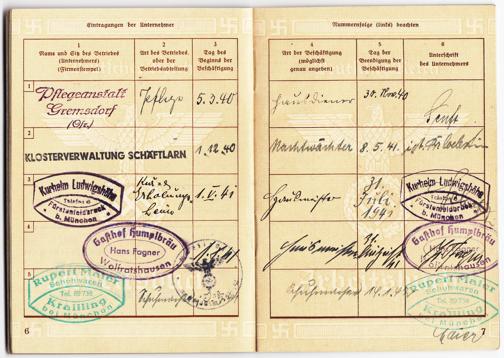 Eintragungen der Unternehmer
1
Name und Sitz des Betriebes
(Unternehmers)
(Firmenstempel)
2
Art des Betriebes
oder der
Betriebsabteilung
3
Tag des
Beginns der
Beschäftigung
1
Pflegeanstalt
Gremsdorf
Pflege
5.3.40
2
KLOSTERVERWALTUNG SCHÄFTLARN
1.12.40
Kurheim Ludwigshöhe
Telefon
Fürstenfeldbruck
b. München
Kurheim
Erholung
1.V.41
Gasthof Humplbräu
Hans Fagner
Wolfratshausen
5
Rupert Maier
Schuhwaren
Tel. 89738
Krailling
bei München
6
Nummernfolge (links) beachten
4
Art der Beschäftigung
(möglichst
genau angeben)
5
Tag der
Beendigung der
Beschäftigung
6
Unterschrift
des Unternehmers
Hausdiener
30. Nov. 40
Nachtwächter
8.5.41
Hausmeister
31.
Juli
1941
Kurheim Ludwigshöhe
Telefon
Fürstenfeldbruck
b. München
Gasthof Humplbräu
Wolfratshausen
Rupert Maier
Schuhwaren
Tel. 89738
Krailling
bei München
Maier
7